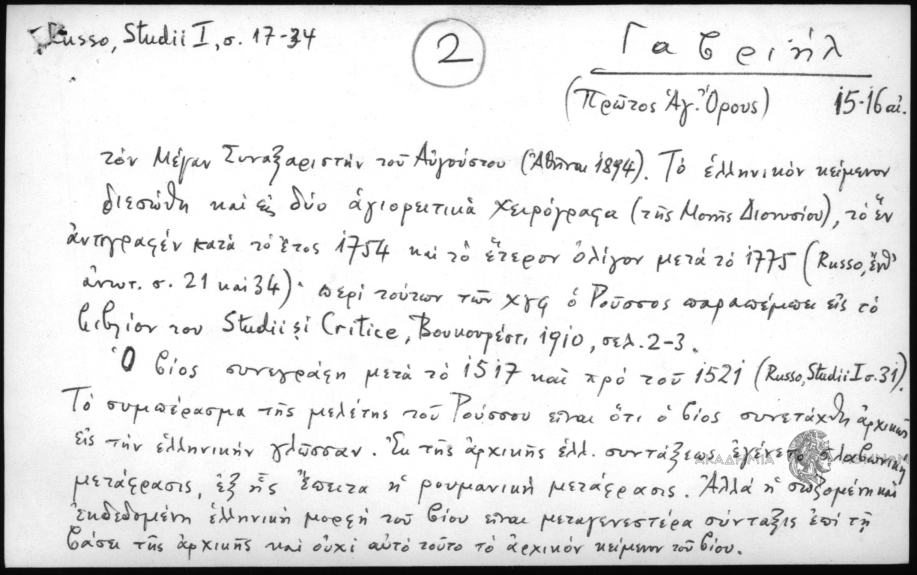 Russo, Studii I, σ. 17-34
2
Γαβριήλ
(Πρῶτος Ἁγ. Ὄρους) 15-16 αἰ.
τὸν Μέγαν Συναξαριστὴν τοῦ Αὐγούστου (Ἀθῆναι 1894). Τὸ ἑλληνικὸν κείμενον
διεσώθη καὶ εἰς δύο ἁγιορειτικὰ χειρόγραφα (τῆς Μονῆς Διονυσίου), τὸ ἓν
ἀντιγραφὲν κατὰ τὸ ἔτος 1754 καὶ τὸ ἕτερον ὀλίγον μετὰ τὸ 1775 (Russo, ἔνθ'
ἀνωτ. σ. 21 καὶ 34)· περὶ τούτων τῶν χγφ ὁ Ροῦσσος παραπέμπει εἰς τὸ
βιβλίον του Studii și Critice, Βουκουρέστι, 1910, σελ. 2-3.
Ὁ βίος συνεγράφη μετὰ τὸ 1517 καὶ πρὸ τοῦ 1521 (Russo, Studii I σ. 31).
Τὸ συμπέρασμα τῆς μελέτης τοῦ Ρούσσου εἶναι ὅτι ὁ βίος συνετάχθη ἀρχικῶς
εἰς τὴν ἑλληνικὴν γλῶσσαν. Ἐκ τῆς ἀρχικῆς ἑλλ. συντάξεως ἐγένετο σλαβωνικὴ
μετάφρασις, ἐξ ἧς ἔπειτα ἡ ρουμανικὴ μετάφρασις. Ἀλλὰ ἡ σωζομένη καὶ
ἐκδεδομένη ἑλληνικὴ μορφὴ τοῦ βίου εἶναι μεταγενεστέρα σύνταξις ἐπὶ τῇ
βάσει τῆς ἀρχικῆς καὶ οὐχὶ αὐτὸ τοῦτο τὸ ἀρχικὸν κείμενον τοῦ βίου.
ΑΚΑΔΗΜΙΑ ΑΘΗΝΩΝ